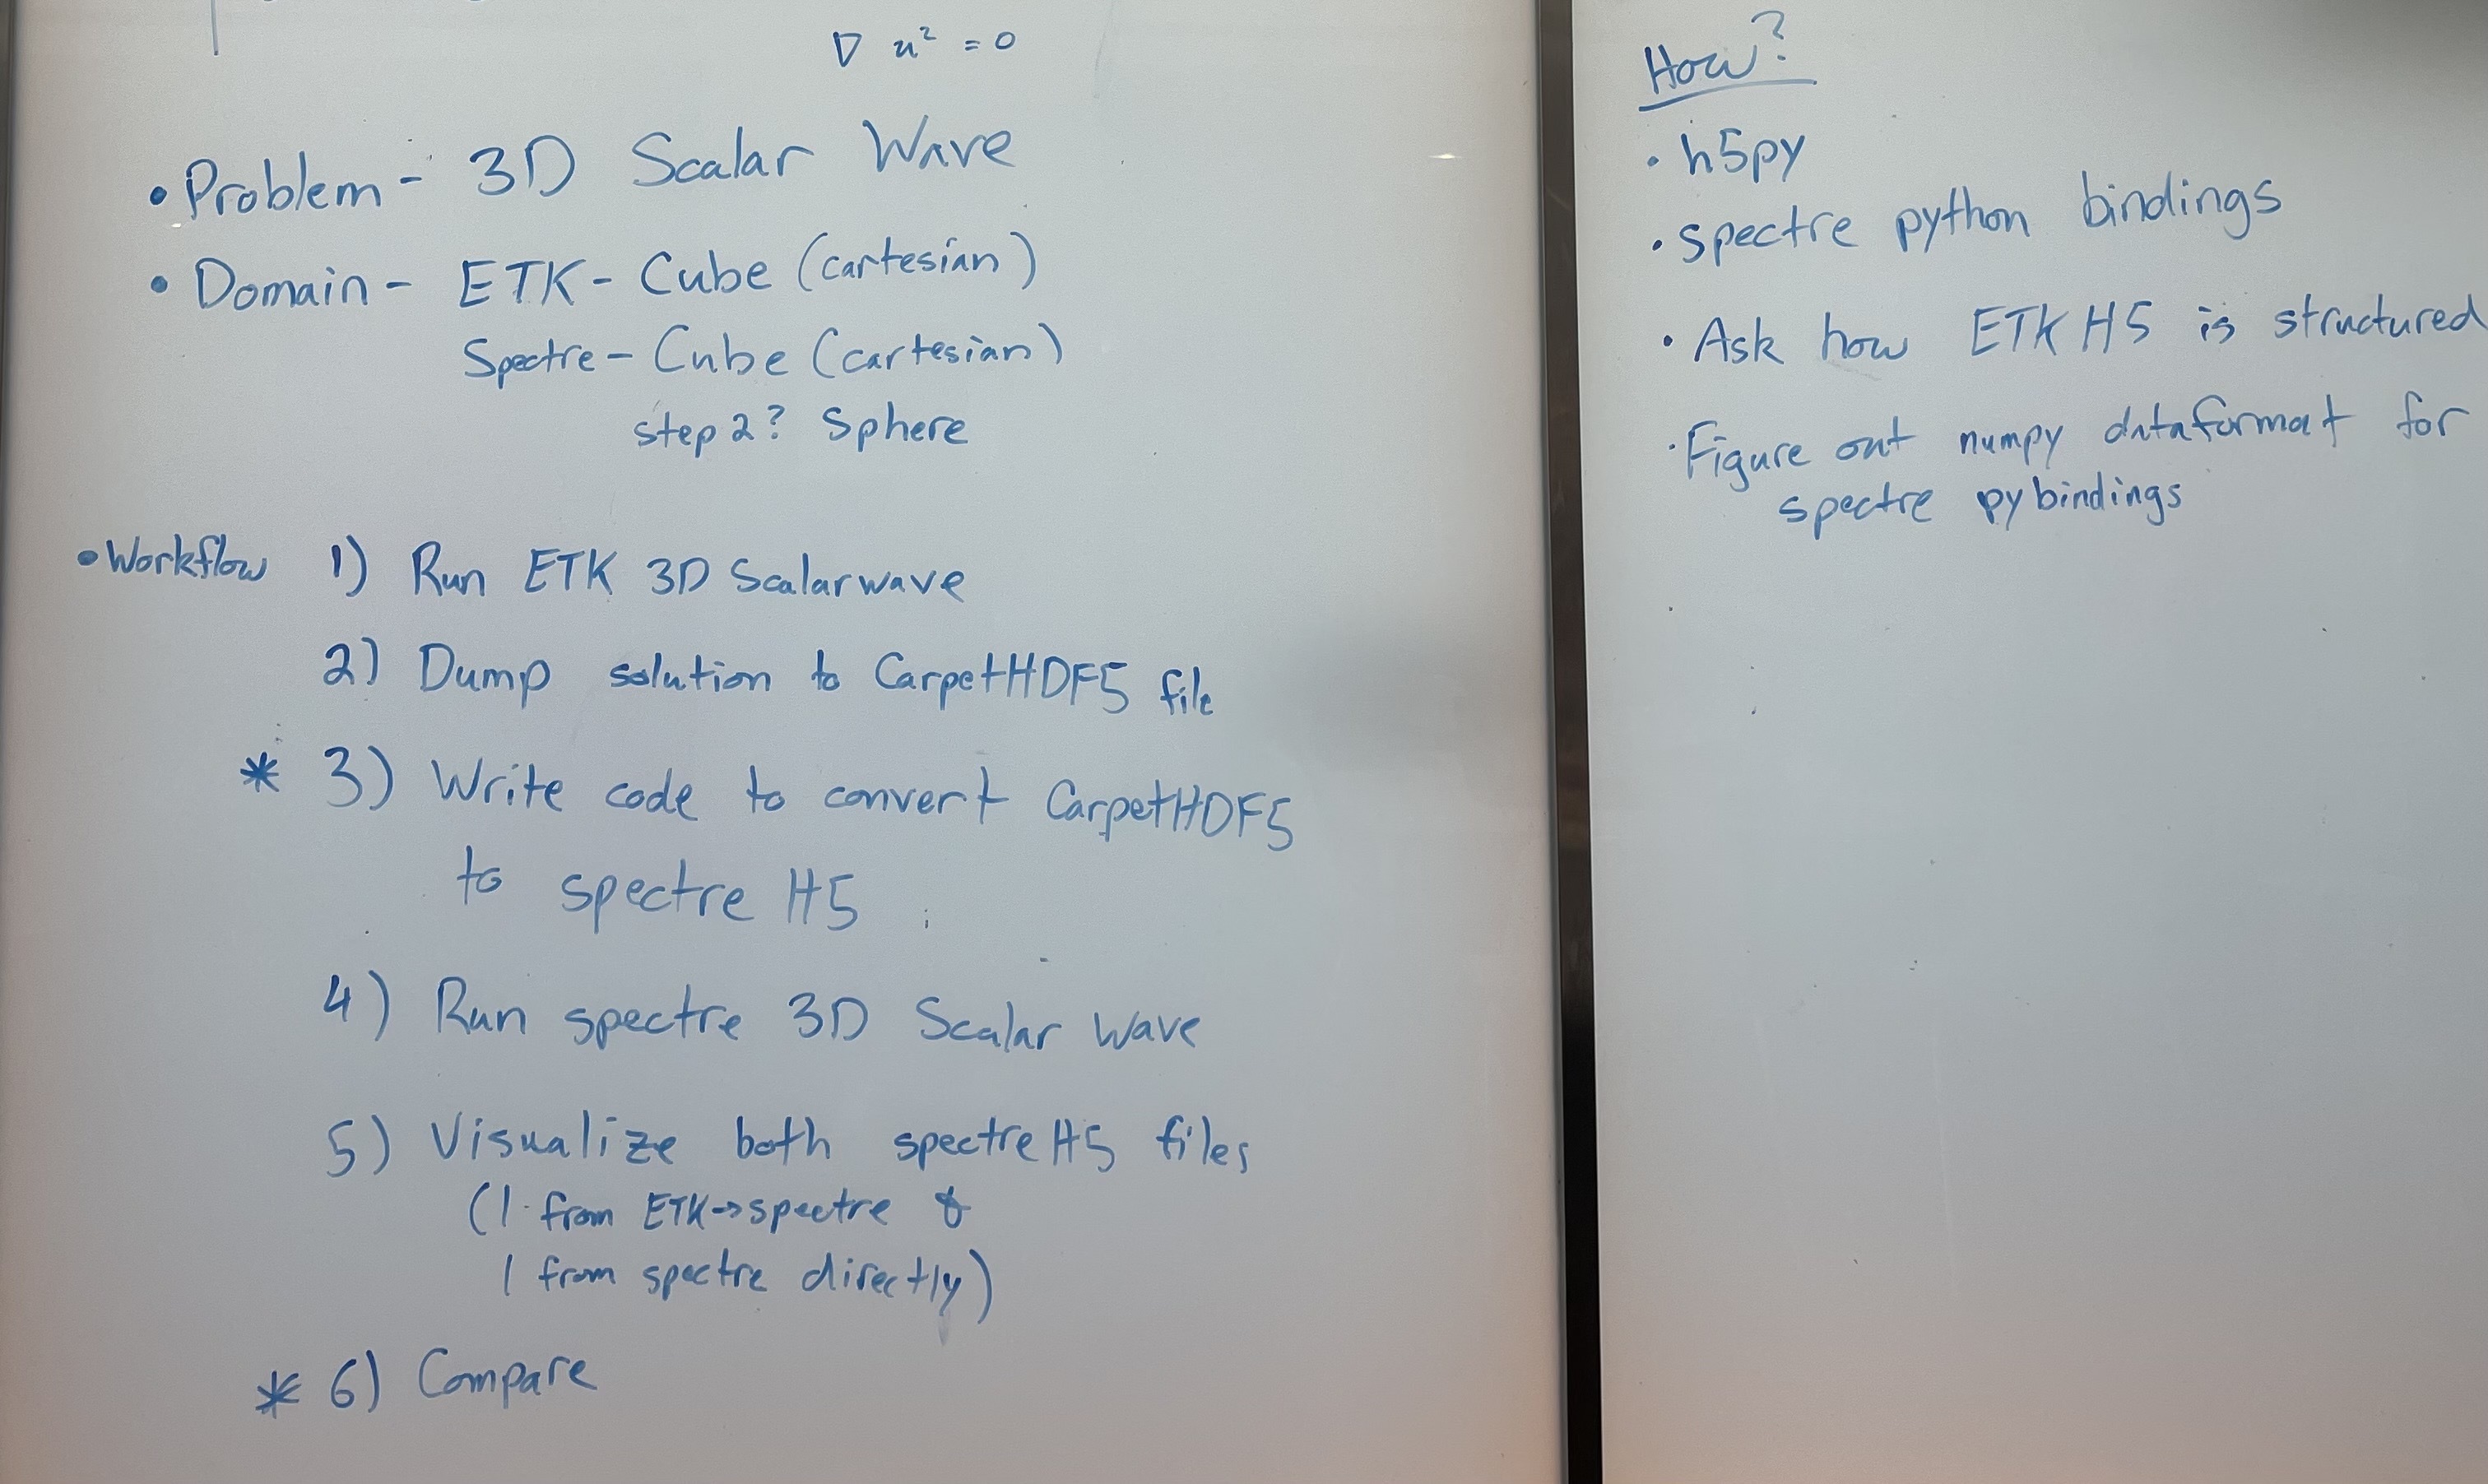 ∇ u² = 0
• Problem - 3D Scalar Wave
• Domain - ETK - Cube (cartesian)
Spectre - Cube (cartesian)
step 2? Sphere
• Workflow 1) Run ETK 3D Scalarwave
2) Dump solution to CarpetHDF5 file
* 3) Write code to convert CarpetHDF5
to spectre H5
4) Run spectre 3D Scalar Wave
5) Visualize both spectre H5 files
(1 from ETK→spectre &
1 from spectre directly)
* 6) Compare
How?
• h5py
• spectre python bindings
• Ask how ETK H5 is structured
• Figure out numpy dataformat for
spectre pybindings